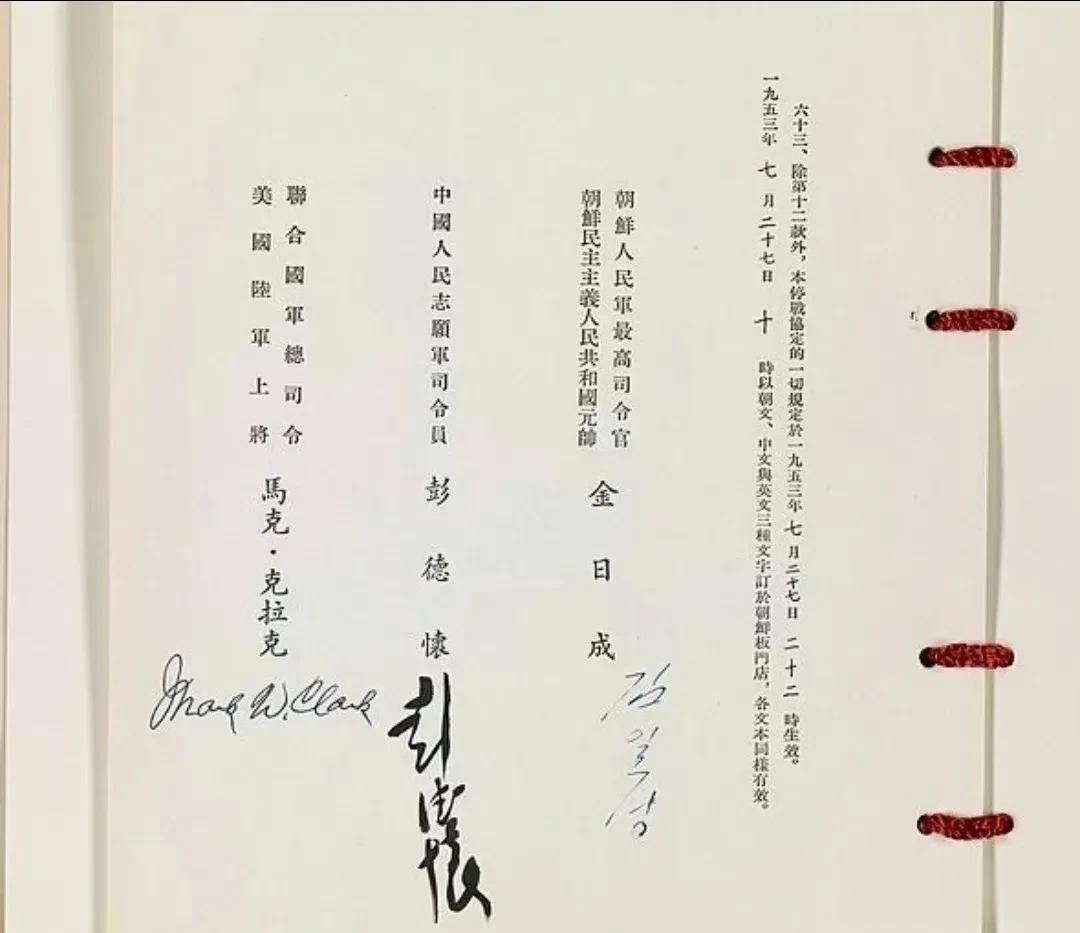 六十三、除第十二款外,本停戰協定的一切規定於一九五三年 七 月二十七日 二十二 時生效。
一九五三年 七 月二十七日 十 時以朝文、中文與英文三種文字訂於朝鮮板門店,各文本同樣有效。
朝鮮人民軍最高司令官
朝鮮民主主義人民共和國元帥
金日成
김일성
中國人民志願軍司令員
彭德懷
彭德懷
聯合國軍總司令
美國陸軍上將
馬克·克拉克
Mark W. Clark